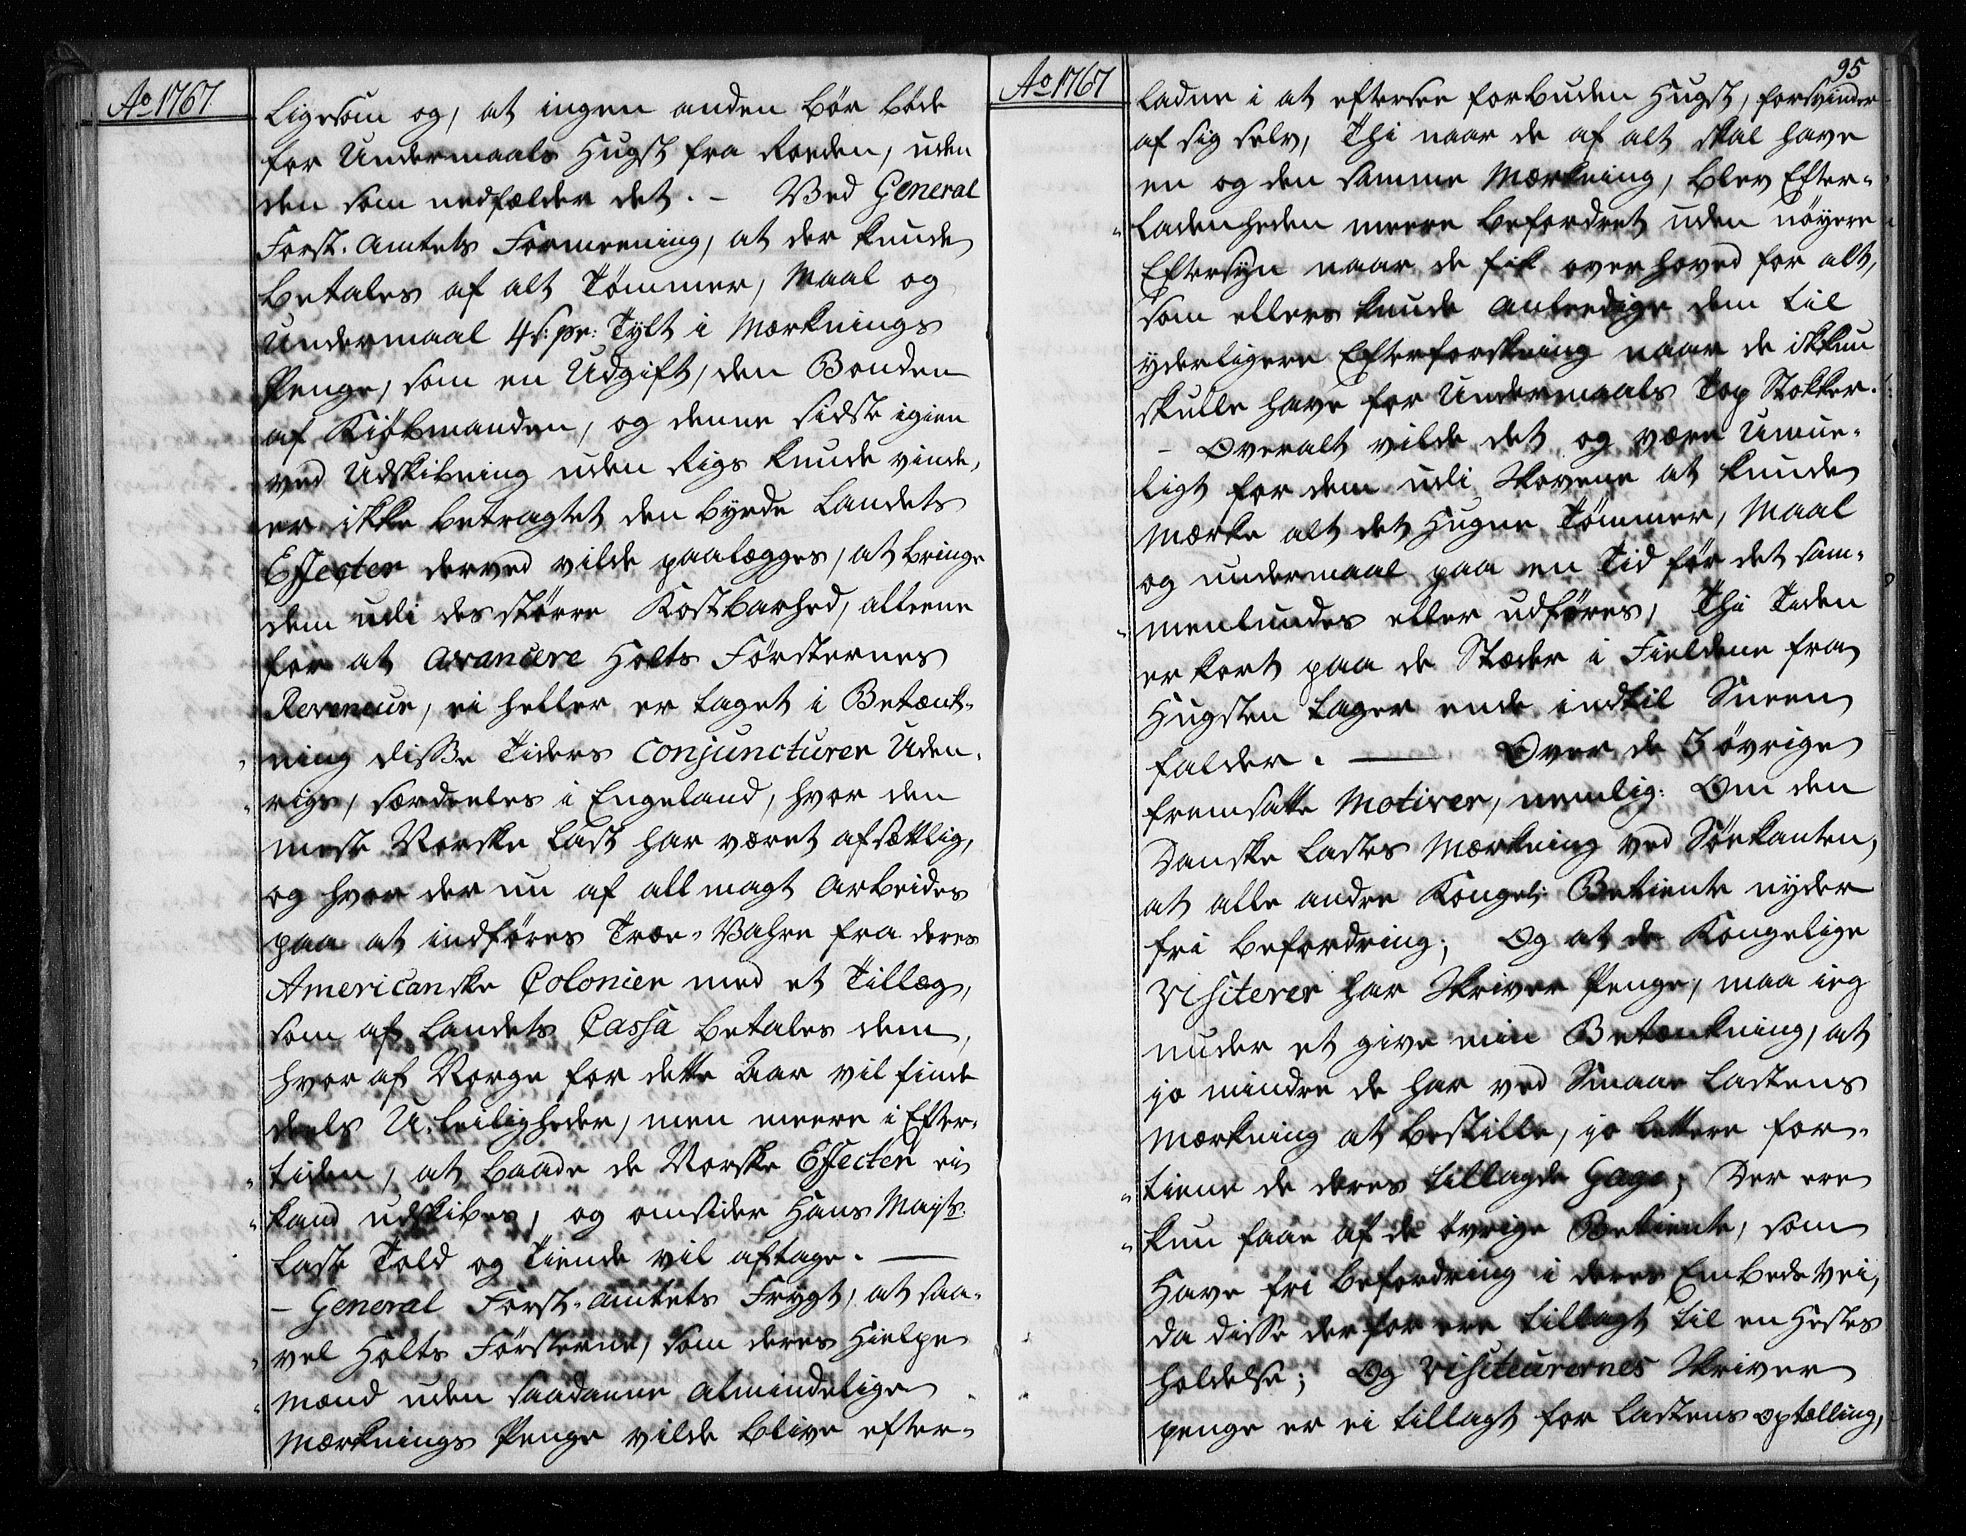 Ao 1767.
Ligesom og, at ingen anden bør bøde
for Undermaals Hugst fra Roeden, uden
den som nedfælder det. – Ved General
Forst-Amtets Formeening, at der kunde
betales af alt Tømmer, Maal og
Undermaal 4 s: pr: Tylt i Mærknings
Penge, som en Udgift, den Bonden
af Kiøbmanden, og denne sidste igien
ved Udskibning uden Rigs kunde vinde,
er ikke betragtet den byrde Landets
Effecter derved vilde paalægges, at bringe
dem udi des større Kostbarhed, alleene
for at avancere Holts Førsternes
Revenuer, ei heller er taget i Betænk-
ning disse Tiders Conjuncturer Uden-
rigs, særdeeles i Engeland, hvor den
meste Norske Last har været afsættlig,
og hvor der nu af all magt arbeides
paa at indføres Træe-Vahre fra deres
Americanske Colonier med et Tillæg,
som af Landets Cassa betales dem,
hvor af Norge for dette Aar vil finde
deels U-leiligheder, men meere i Efter-
tiden, at baade de Norske Effecter ei
kand udskibes, og omsider Hans Mayts:
Last Told og Tiende vil aftage. –
– General Forst-Amtets Frygt, at saa-
vel Holts Førsterne, som deres Hielpe
Mænd uden saadanne almindelige
Mærknings Penge vilde blive efter-
Ao 1767
95
ladne i at eftersee forbuden Hugst, forsvinder
af sig selv, Thi naar de af alt skal have
en og den samme Mærkning, blev Efter-
ladenheden meere befordret uden nøyere
Eftersyn naar de fik over hoved for alt,
som ellers kunde anleedige dem til
yderligere Efterforskning naar de ikkun
skulle have for Undermaals Top Stokker.
– Overalt vilde det og være Umue-
ligt for dem udi Skovene at kunde
Mærke alt det Hugne Tømmer, Maal
og undermaal paa en Tid før det sam-
menlundes eller udføres, Thi Tiden
er kort paa de Stæder i Fieldene fra
Hugsten tager ende indtil Sneen
falder. – Over de 3 øvrige
fremsatte Motiver, nemlig: Om den
Danske Lastes Mærkning ved Søekanten,
at alle andre Kongel: Betiente nyder
fri befordring; Og at de Kongelige
Visiterer har Skriver Penge, maa ieg
under et give min Betænkning, at
jo mindre de har ved Smaae Lastens
Mærkning at bestille, jo lettere for-
tiene de deres tillagde Gage; Der ere
kun faae af de øvrige Betiente, som
Have fri befordring i deres Embeds Vei,
da disse derfor ere tillagt til en Hestes
holdelse; Og Visiteurernes Skriver
penge er ei tillagt for Lastens optælling,